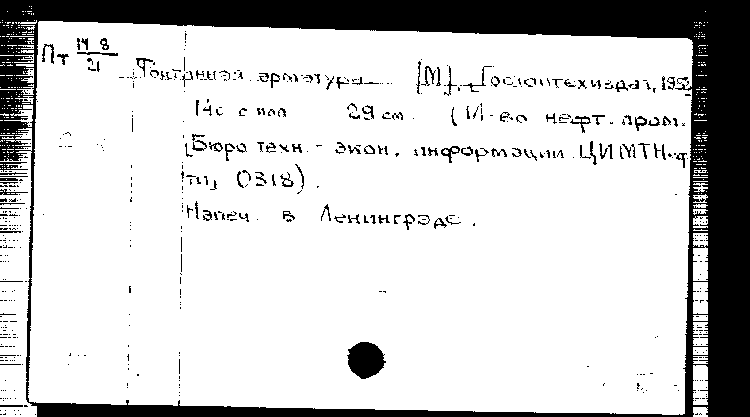 Пт 14 8/21
Фонтанная арматура. [М], Гостоптехиздат, 195
14с с илл 29 см. (М-во нефт. пром.
Бюро техн.-экон. информации ЦИМТНефти, 0318).
Напеч. в Ленинграде.